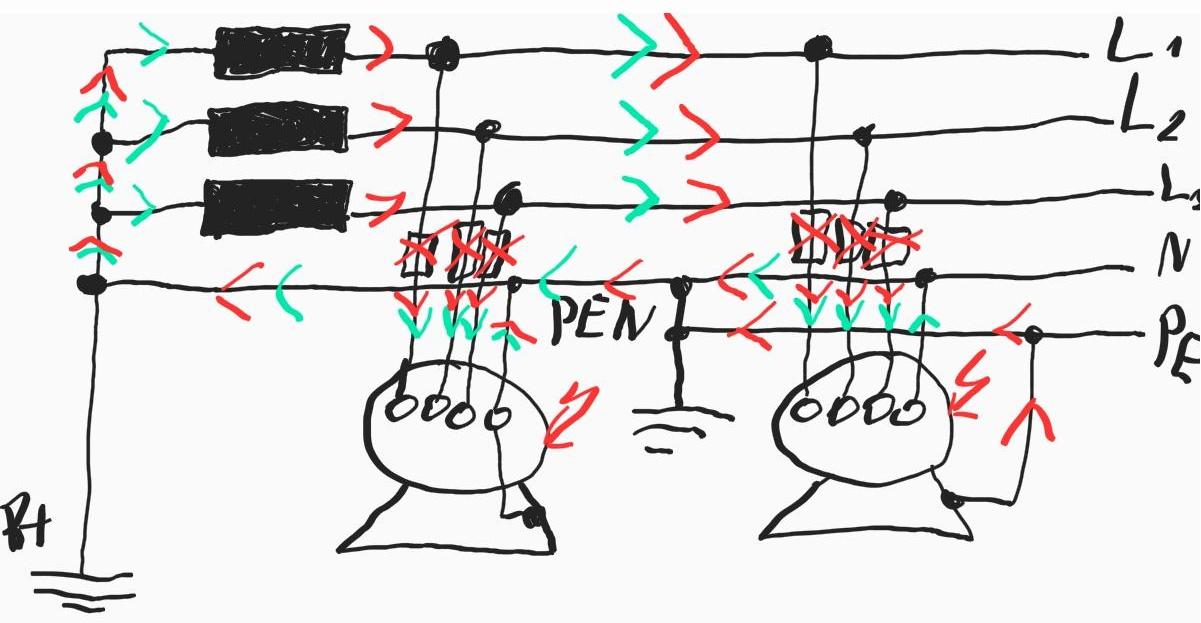 L1
L2
L3
N
PEN
PE